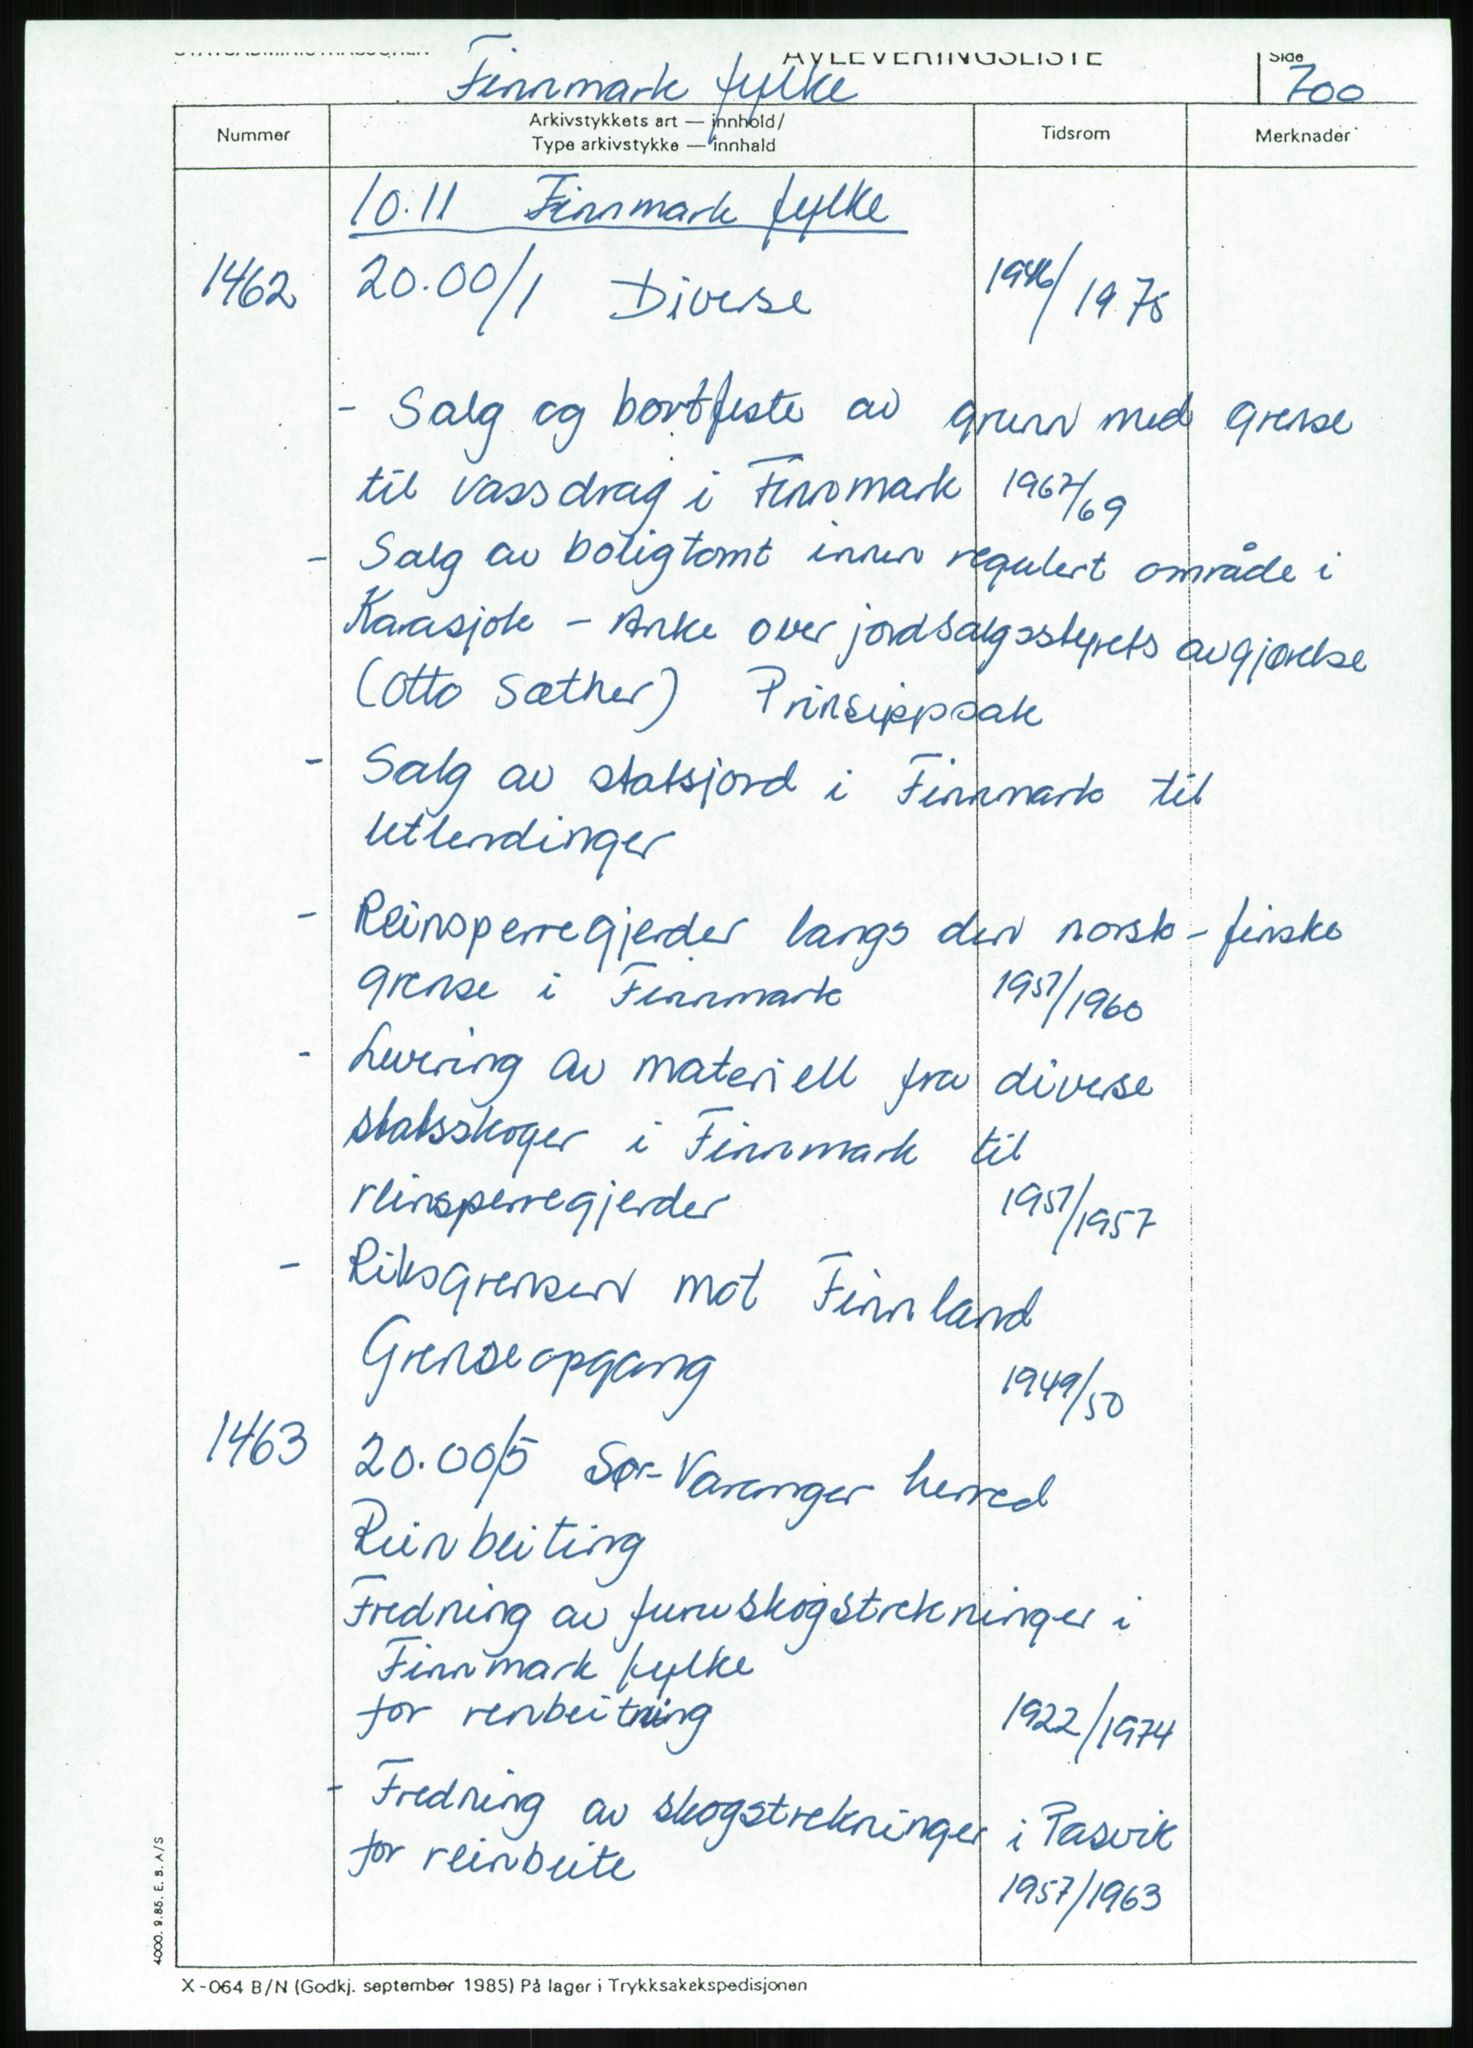 STATSADMINISTRASJONEN AVLEVERINGSLISTE Side
Finnmark fylke 700
Nummer Arkivstykkets art — innhold/ Tidsrom Merknader
Type arkivstykke — innhald
10.11 Finnmark fylke
1462 20.00/1 Diverse 1946/1975
- Salg og bortfeste av grunn med grense
til vassdrag i Finnmark 1967/69
- Salg av boligtomt innen regulert område i
Karasjok - Anke over jordsalgsstyrets avgjørelse
(Otto Sæther) Prinsippsak
- Salg av statsjord i Finnmark til
utlendinger
- Reinsperregjerder langs den norsk-finske
grense i Finnmark 1957/1960
- Levering av materiell fra diverse
statsskoger i Finnmark til
reinsperregjerder 1957/1957
- Riksgrensen mot Finnland
Grenseopgang 1949/50
1463 20.00/5 Sør-Varanger herred
Reinbeiting
Fredning av furuskogstrekninger i
Finnmark fylke
for renbeitning 1922/1974
- Fredning av skogstrekninger i Pasvik
for reinbeite
1957/1963
4000. 9.85. E. B. A/S
X-064 B/N (Godkj. september 1985) På lager i Trykksakekspedisjonen